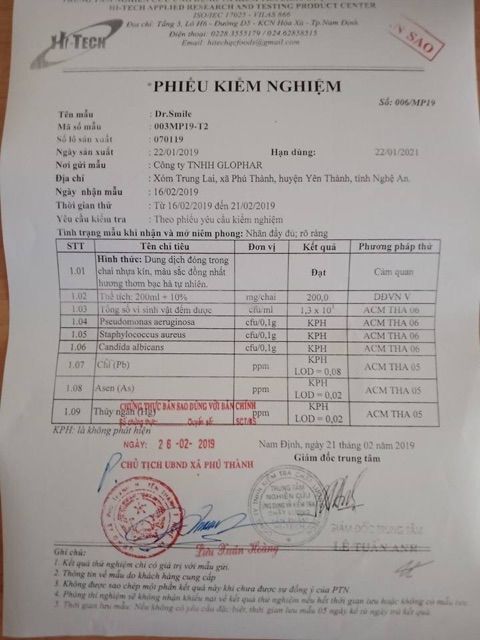 HI-TECH APPLIED RESEARCH AND TESTING PRODUCT CENTER
ISO/IEC 17025 - VILAS 866
Địa chỉ: Tầng 3, Lô H6 - Đường D5 - KCN Hòa Xá - Tp.Nam Định
Điện thoại: 0228.3555179 / 024.62858515
Email: hitechqcfoods@gmail.com
HI-TECH
BẢN SAO
*PHIẾU KIỂM NGHIỆM
Số: 006/MP19
Tên mẫu : Dr.Smile
Mã số mẫu : 003MP19-T2
Số lô sản xuất : 070119
Ngày sản xuất : 22/01/2019 Hạn dùng: 22/01/2021
Nơi gửi mẫu : Công ty TNHH GLOPHAR
Địa chỉ : Xóm Trung Lai, xã Phú Thành, huyện Yên Thành, tỉnh Nghệ An.
Ngày nhận mẫu : 16/02/2019
Thời gian thử : Từ 16/02/2019 đến 21/02/2019
Yêu cầu kiểm tra : Theo phiếu yêu cầu kiểm nghiệm
Tình trạng mẫu khi nhận và mở niêm phong: Nhãn đầy đủ; rõ ràng
STT Tên chỉ tiêu Đơn vị Kết quả Phương pháp thử
1.01 Hình thức: Dung dịch đóng trong chai nhựa kín, màu sắc đồng nhất hương thơm bạc hà tự nhiên. Đạt Cảm quan
1.02 Thể tích: 200ml + 10% mg/chai 200,0 DĐVN V
1.03 Tổng số vi sinh vật đếm được cfu/ml 1,3 x 10¹ ACM THA 06
1.04 Pseudomonas aeruginosa cfu/0,1g KPH ACM THA 06
1.05 Staphylococcus aureus cfu/0,1g KPH ACM THA 06
1.06 Candida albicans cfu/0,1g KPH ACM THA 06
1.07 Chì (Pb) ppm KPH LOD = 0,08 ACM THA 05
1.08 Asen (As) ppm KPH LOD = 0,02 ACM THA 05
1.09 Thủy ngân (Hg) ppm KPH LOD = 0,02 ACM THA 05
CHỨNG THỰC BẢN SAO ĐÚNG VỚI BẢN CHÍNH
Số chứng thực: Quyển số: SCT/BS
KPH: là không phát hiện
NGÀY: 26-02-2019
Nam Định, ngày 21 tháng 02 năm 2019
Giám đốc trung tâm
CHỦ TỊCH UBND XÃ PHÚ THÀNH
TRUNG TÂM
NGHIÊN CỨU
GIÁM ĐỐC TRUNG TÂM
LÊ TUẤN ANH
Lưu Xuân Hoàng
Ghi chú:
1. Kết quả thử nghiệm chỉ có giá trị với mẫu gửi.
2. Thông tin về mẫu do khách hàng cung cấp
3. Không được sao chép một phần kết quả này khi chưa được sự đồng ý của PTN.
4. Phòng thí nghiệm sẽ không nhận khiếu nại về kết quả thử nghiệm nếu hết thời gian lưu hoặc không có mẫu lưu.
5. Thời gian lưu mẫu: Nếu không có yêu cầu đặc biệt, thời gian lưu mẫu 05 ngày kể từ ngày trả kết quả.